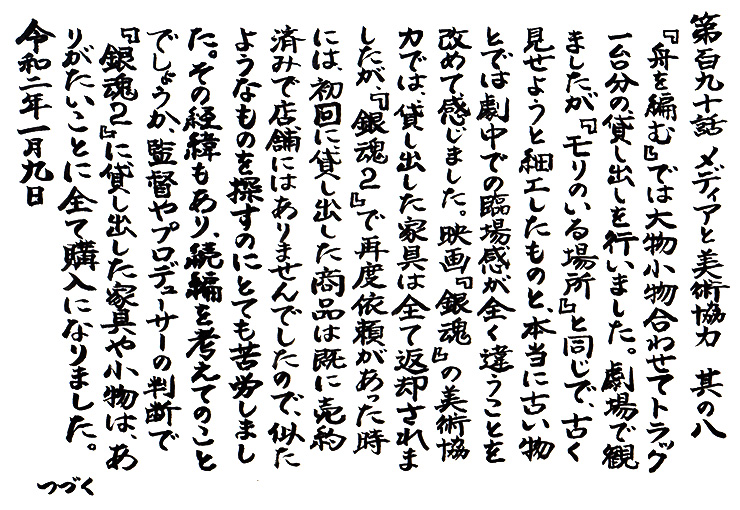 第百九十話 メディアと美術協力 其の八
『舟を編む』では大物小物合わせてトラック
一台分の貸し出しを行いました。劇場で観
ましたが『モリのいる場所』と同じで、古く
見せようと細工したものと、本当に古い物
とでは劇中での臨場感が全く違うことを
改めて感じました。映画『銀魂』の美術協
力では、貸し出した家具は全て返却されま
したが、『銀魂２』で再度依頼があった時
には、初回に貸し出した商品は既に売約
済みで店舗にはありませんでしたので、似た
ようなものを探すのにとても苦労しまし
た。その経緯もあり、続編を考えてのこと
でしょうか、監督やプロデューサーの判断で
『銀魂２』に貸し出した家具や小物は、あ
りがたいことに全て購入になりました。
令和二年一月九日
つづく